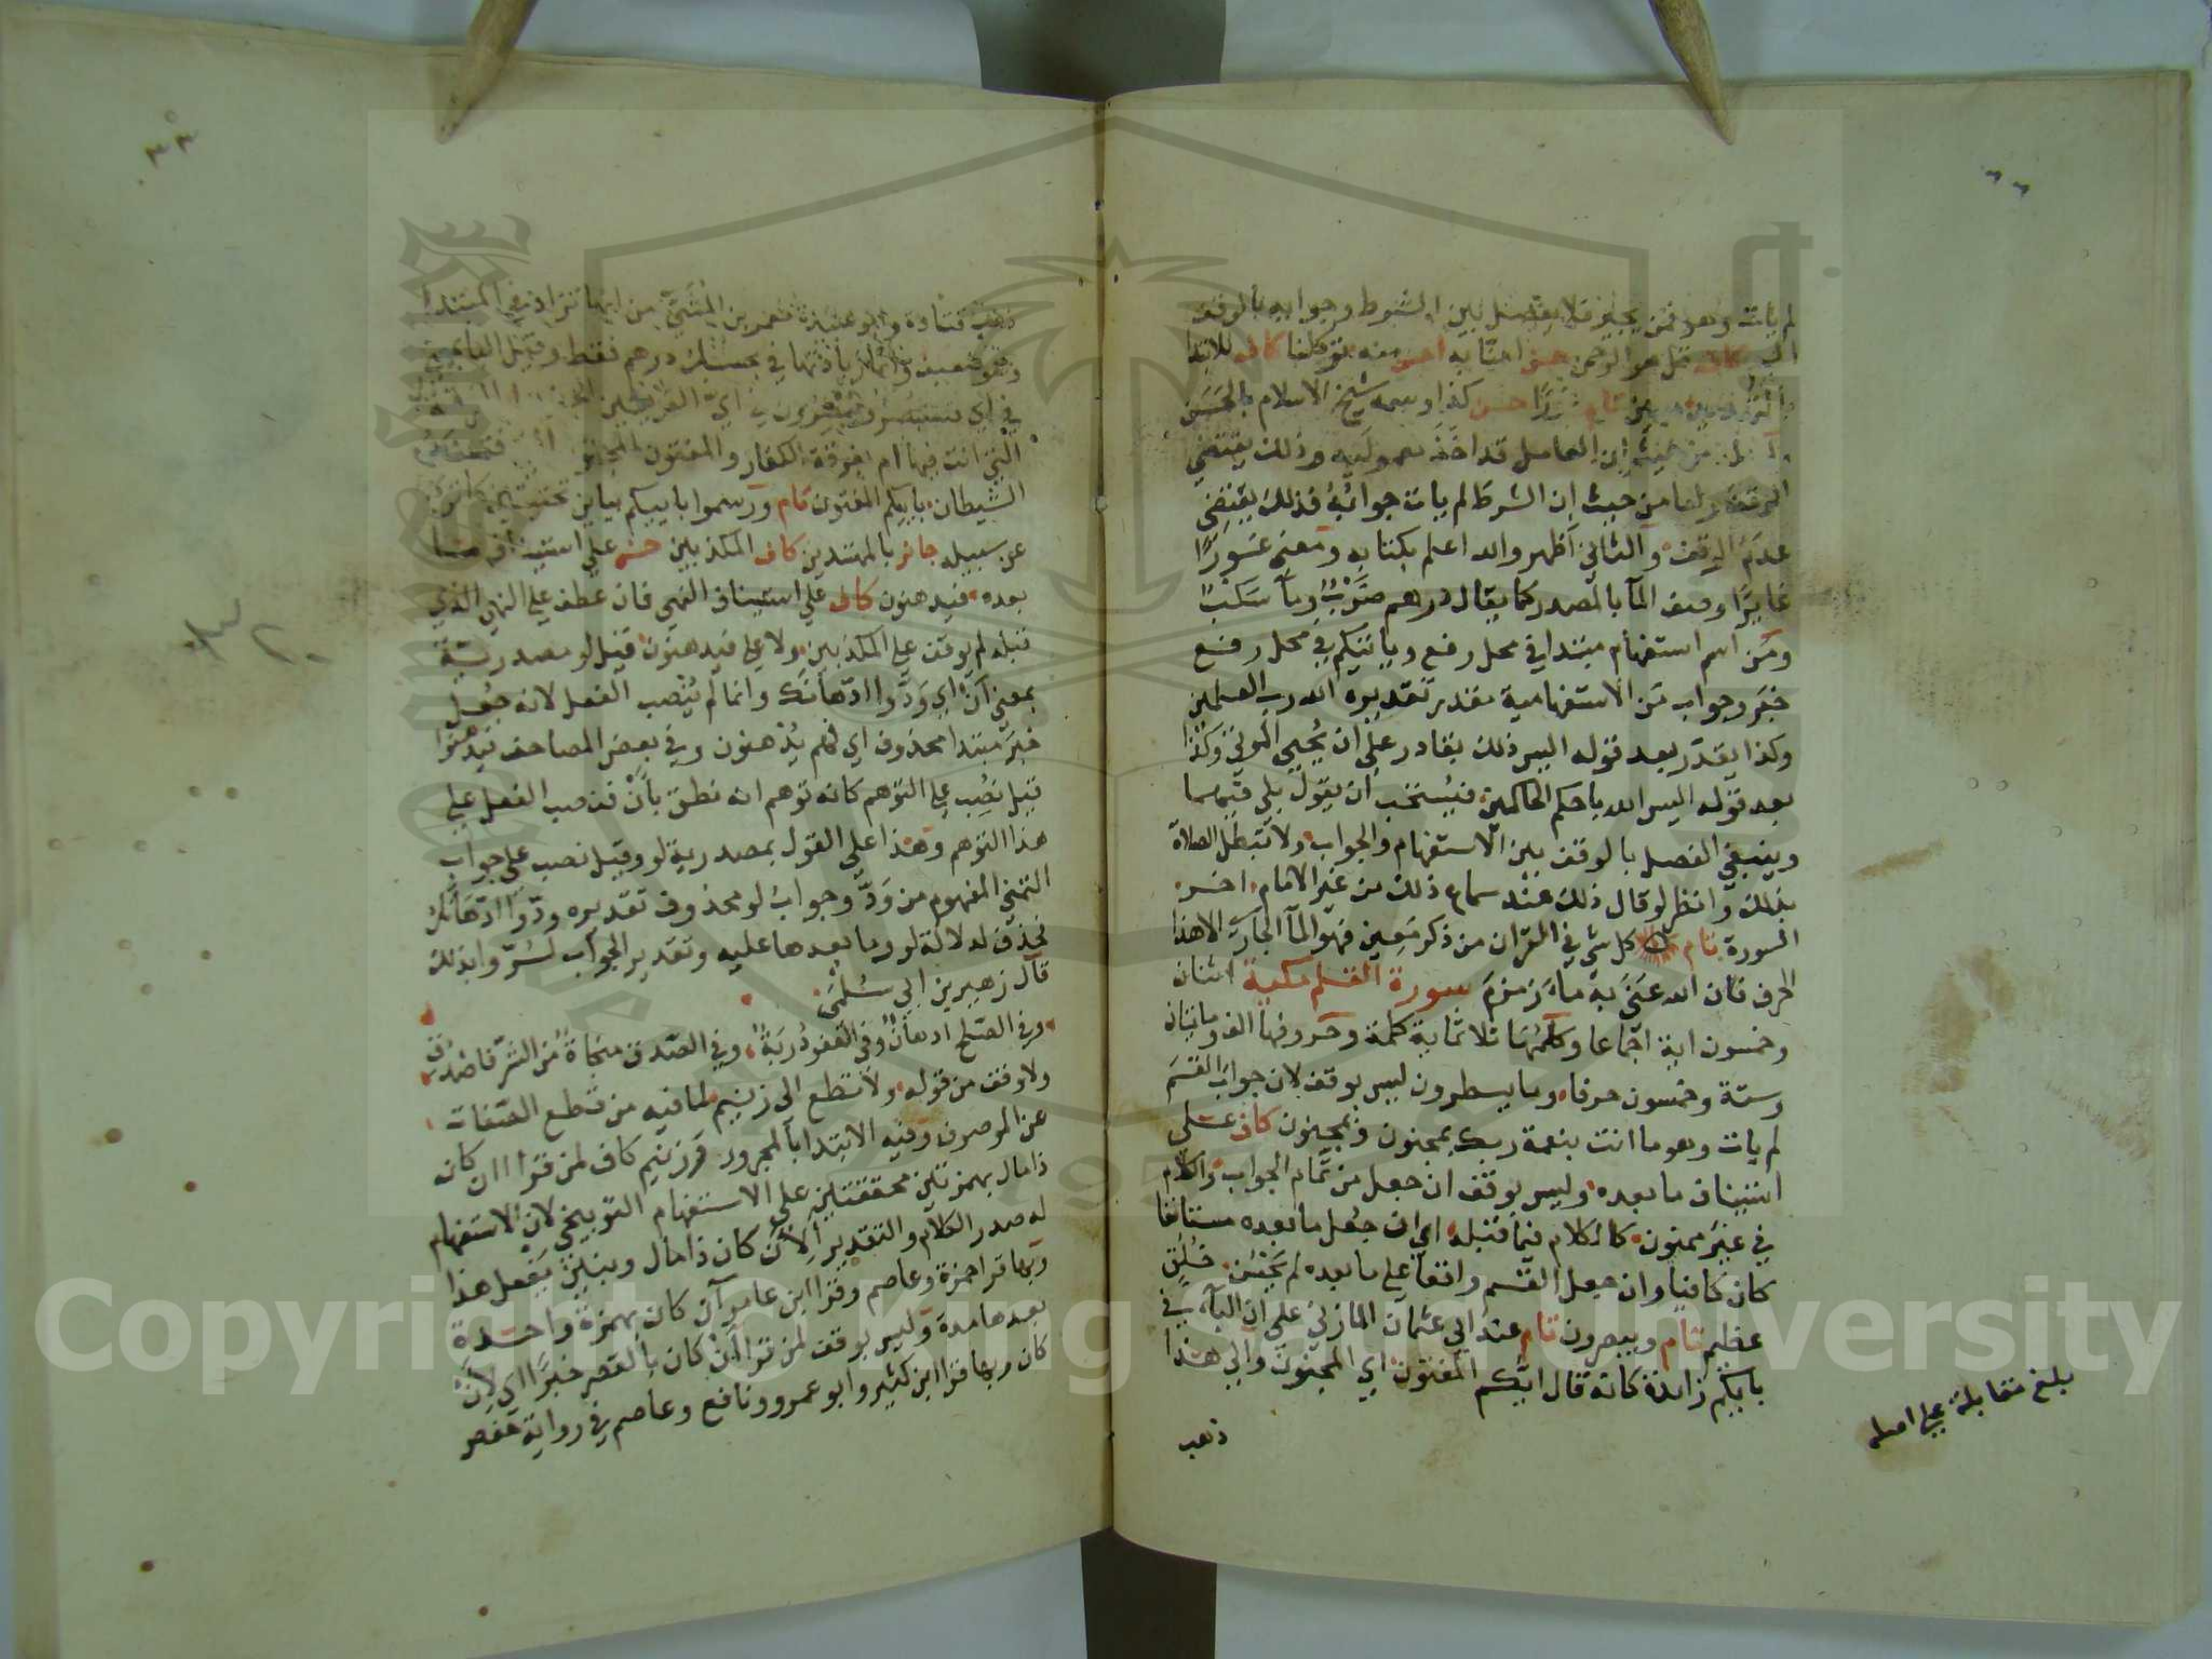 لم يات وهو فمن يجير فلا يفصل بين الشرط وجوابه بالوقف
اليم كاف قل هو الرحمن حسن امنا به احسن منه توكلنا كاف للابتدا
بالتهديد مبين تام غورا حسن كذا وسمه شيخ الاسلام بالحسن
من حيث ان العامل قد اخذ معموليه وذلك يقتضي
الوقف واما من حيث ان الشرط لم يات جوابه فذلك يقتضي
عدم الوقف والثاني اظهر والله اعلم بكتابه ومعنى غورا
غايرا وصف الما بالمصدر كما يقال درهم ضرب وما سكب
ومن اسم استفهام مبتدا في محل رفع وياتيكم في محل رفع
خبر وجواب من الاستفهامية مقدر تقديره الله رب العلمين
وكذا يقدر بعد قوله اليس ذلك بقادر على ان يحيي الموتى وكذا
بعد قوله اليس الله باحكم الحاكمين فيستحب ان يقول بلى فيهما
وينبغي الفصل بالوقف بين الاستفهام والجواب ولا تبطل الصلاة
بذلك وانظر لو قال ذلك عند سماع ذلك من غير الامام اخر
السورة تام كل شي في القران من ذكر معين فهو الما الجاري الا هذا
الحرف فان الله عنى به ماء زمزم سورة القلم مكية اثنان
وخمسون اية اجماعا وكلمها ثلاثماية كلمة وحروفها الف ومايتان
وستة وخمسون حرفا وما يسطرون ليس بوقف لان جواب القسم
لم يات وهو ما انت بنعمة ربك بمجنون وبمجنون كاف على
استيناف ما بعده وليس بوقف ان جعل من تمام الجواب والكلام
في غير ممنون كالكلام فيما قبله اي ان جعل ما بعده مستانفا
كان كافيا وان جعل القسم واقعا على ما بعده لم يحسن خلق
عظيم تام ويبصرون تام عند ابي عثمان المازني على ان الباء في
باييكم زايدة كانه قال ايكم المفتون اي المجنون والى هذا
ذهب
بلغ مقابلة على اصله
ذهب قتادة وابو عبيدة معمر بن المثنى من انها تزاد في المبتدا
وهو ضعيف وانما زيادتها في بحسبك درهم فقط وقيل الباء بمعنى
في اي فستبصر ويبصرون في اي الفريقين
التي انت فيها ام بفرقة الكفار والمفتون المجنون
الشيطان باييكم المفتون تام ورسموا باييكم بياين تحتيتين كما ترى
عن سبيله جائز بالمهتدين كاف المكذبين حسن على استيناف ما
بعده فيدهنون كاف على استيناف النهي فان عطف على النهي الذي
قبله لم يوقف على المكذبين ولا على فيدهنون قيل لو مصدرية
بمعنى ان اي ودوا ادهانك وانما لم ينصب الفعل لانه جعل
خبر مبتدا محذوف اي فهم يدهنون وفي بعض المصاحف فيدهنوا
قيل نصب على التوهم كانه توهم انه نطق بان فنصب الفعل على
هذا التوهم وهذا على القول بمصدرية لو وقيل نصب على جواب
التمني المفهوم من ود وجواب لو محذوف تقديره ودوا ادهانك
فحذف لدلالة لو وما بعدها عليه وتقدير الجواب لسروا بذلك
قال زهير بن ابي سلمى
وفي الصلح ادهان وفي العفو دربة وفي الصدق منجاة من الشر فاصدق
ولا وقف من قوله ولا تطع الى زنيم لما فيه من قطع الصفات
عن الموصوف وفيه الابتدا بالمجرور وزنيم كاف لمن قرا اان كان
ذا مال بهمزتين محققتين على الاستفهام التوبيخي لان الاستفهام
له صدر الكلام والتقدير الان كان ذا مال وبنين يفعل هذا
وبها قرا حمزة وعاصم وقرا ابن عامر آن كان بهمزة واحدة
بعدها مدة وليس بوقف لمن قرا ان كان بالقصر خبرا اي لان
كان وبها قرا ابن كثير وابو عمرو ونافع وعاصم في رواية حفص